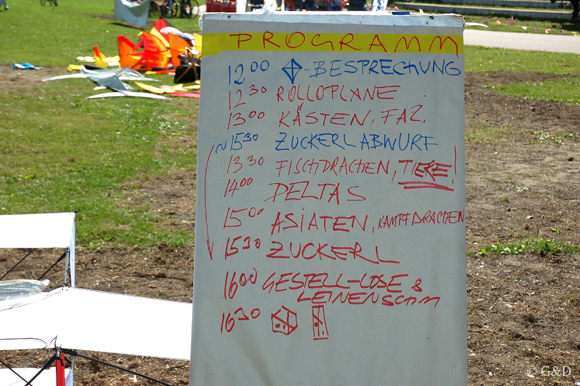 PROGRAMM
12 00 -BESPRECHUNG
12 30 ROLLOPLANE
13 00 KÄSTEN, FAZ.
~15 30 ZUCKERLABWURF
13 30 FISCHDRACHEN, TIERE!
14 00 DELTAS
15 00 ASIATEN, KAMPFDRACHEN
15 30 ZUCKERL
16 00 GESTELL-LOSE &
LEINENSCHM
16 30
© G&D